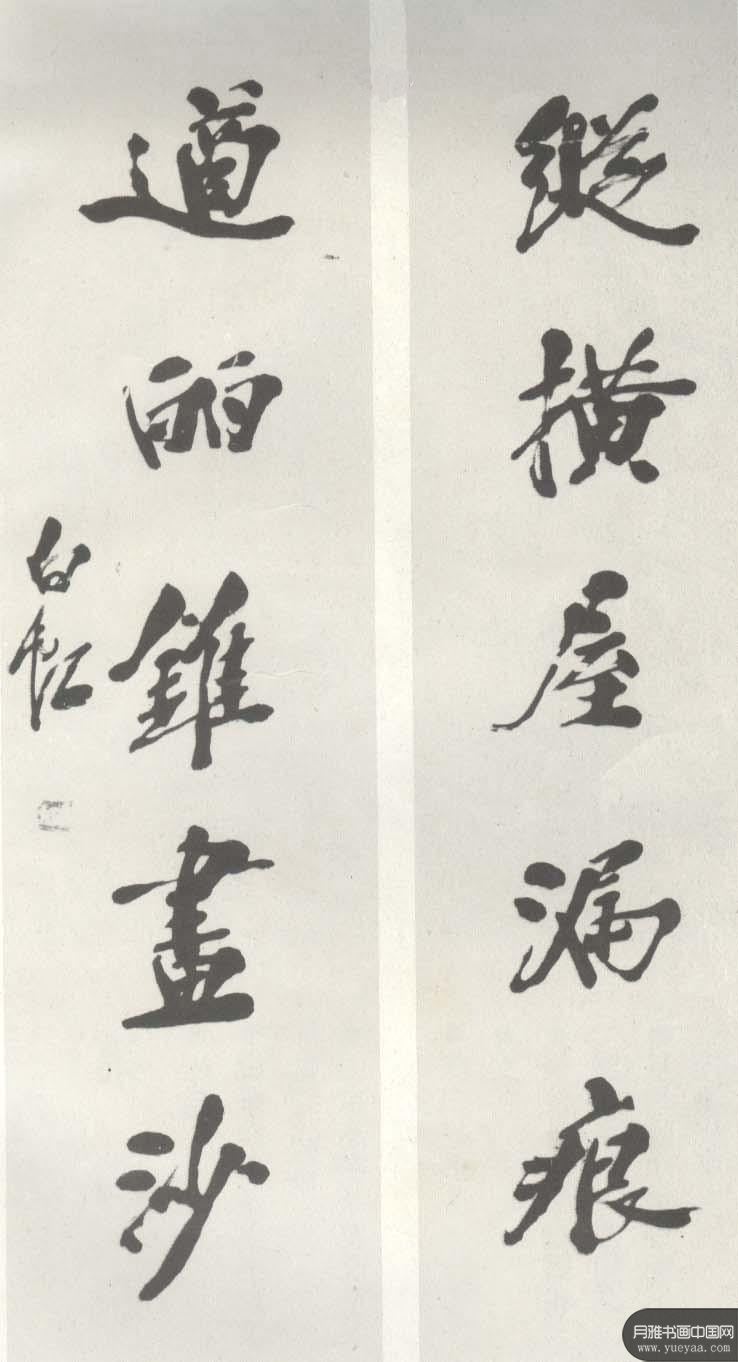 縱橫屋漏痕
遒丽錐畫沙
白蕉
月雅书画中国网
www.yueyaa.com